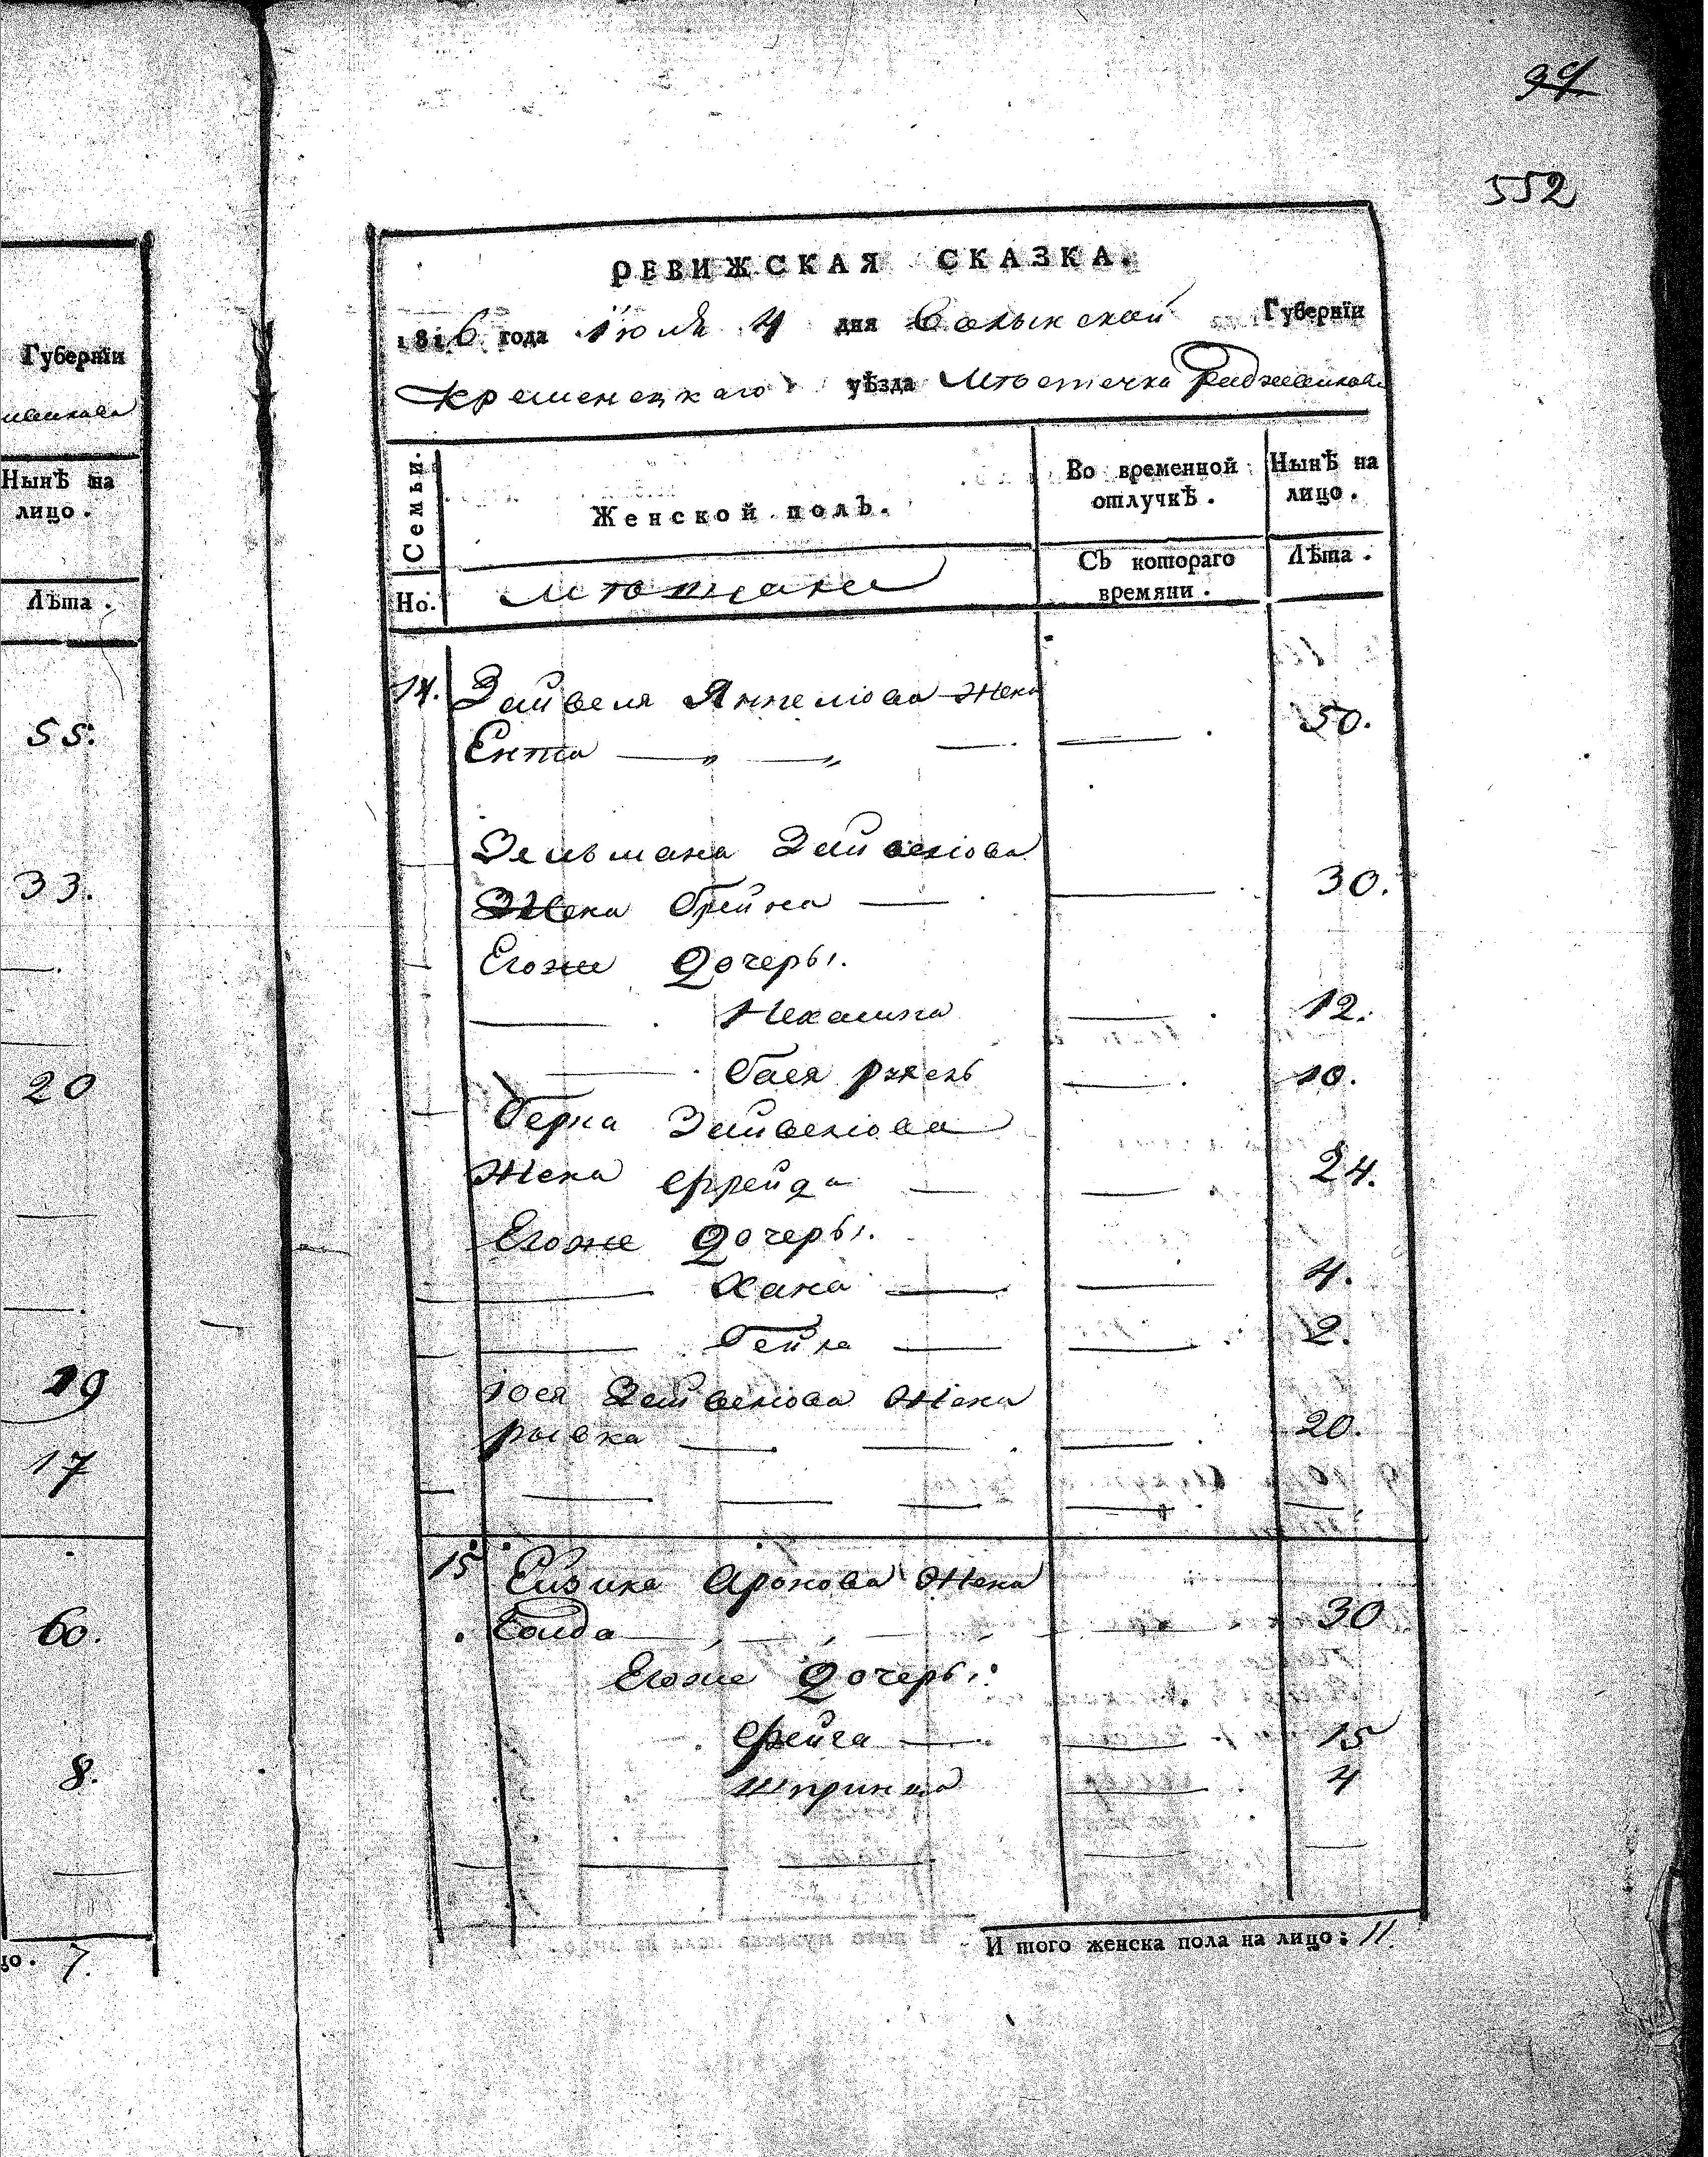 94
552
Губернїи
Нынѣ на
лицо.
Лѣта.
55.
33.
20
19
17
60.
8.
7.
РЕВИЖСКАЯ СКАЗКА.
1816 года Июля 4 дня Волынской Губернїи
Кременецкаго уѣзда Мѣстечка
Семьи.
Женской полъ.
Во временной
отлучкѣ.
Нынѣ на
лицо.
Но.
Мѣщане
Съ котораго
времяни.
Лѣта.
14. Зейвеля Янкелiова Жена
Ента 50.
Зельмана Зейвелiова
Жена Брейна 30.
Егоже Дочеры.
Нехашка 12.
Бася 10.
Берка Зейвелiова
Жена Фрейда 24.
Егоже Дочеры.
Хана 4.
Бейла 2.
Iося Зейвелiова Жена
Рывка 20.
15 Ейзика Аронова Жена
Голда 30
Егоже Дочеры:
Фейга 15
Шпринца 4
И того женска пола на лицо: 11.